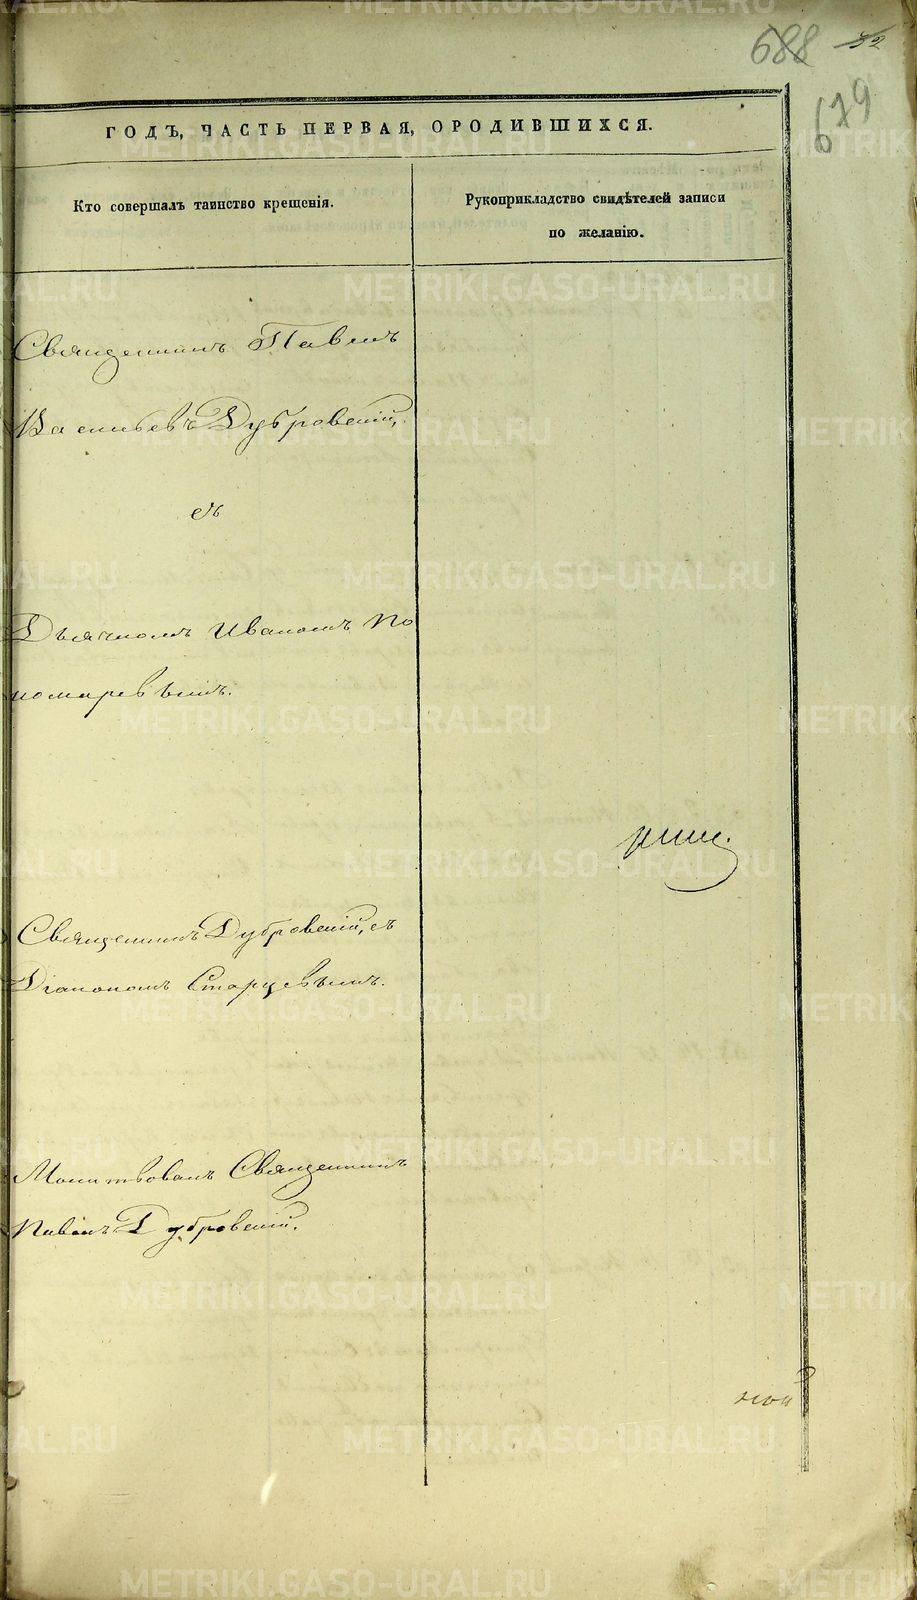 688 32
679
ГОДЪ, ЧАСТЬ ПЕРВАЯ, О РОДИВШИХСЯ.
Кто совершалъ таинство крещенія.
Рукоприкладство свидѣтелей записи
по желанію.
Священникъ Павелъ
Васильевъ Дубровскій,
съ
Дьячкомъ Иваномъ По
номаревымъ.
Священникъ Дубровскій, съ
Діакономъ Старцевымъ.
Молитвовалъ Священникъ
Павелъ Дубровскій.
METRIKI.GASO-URAL.RU